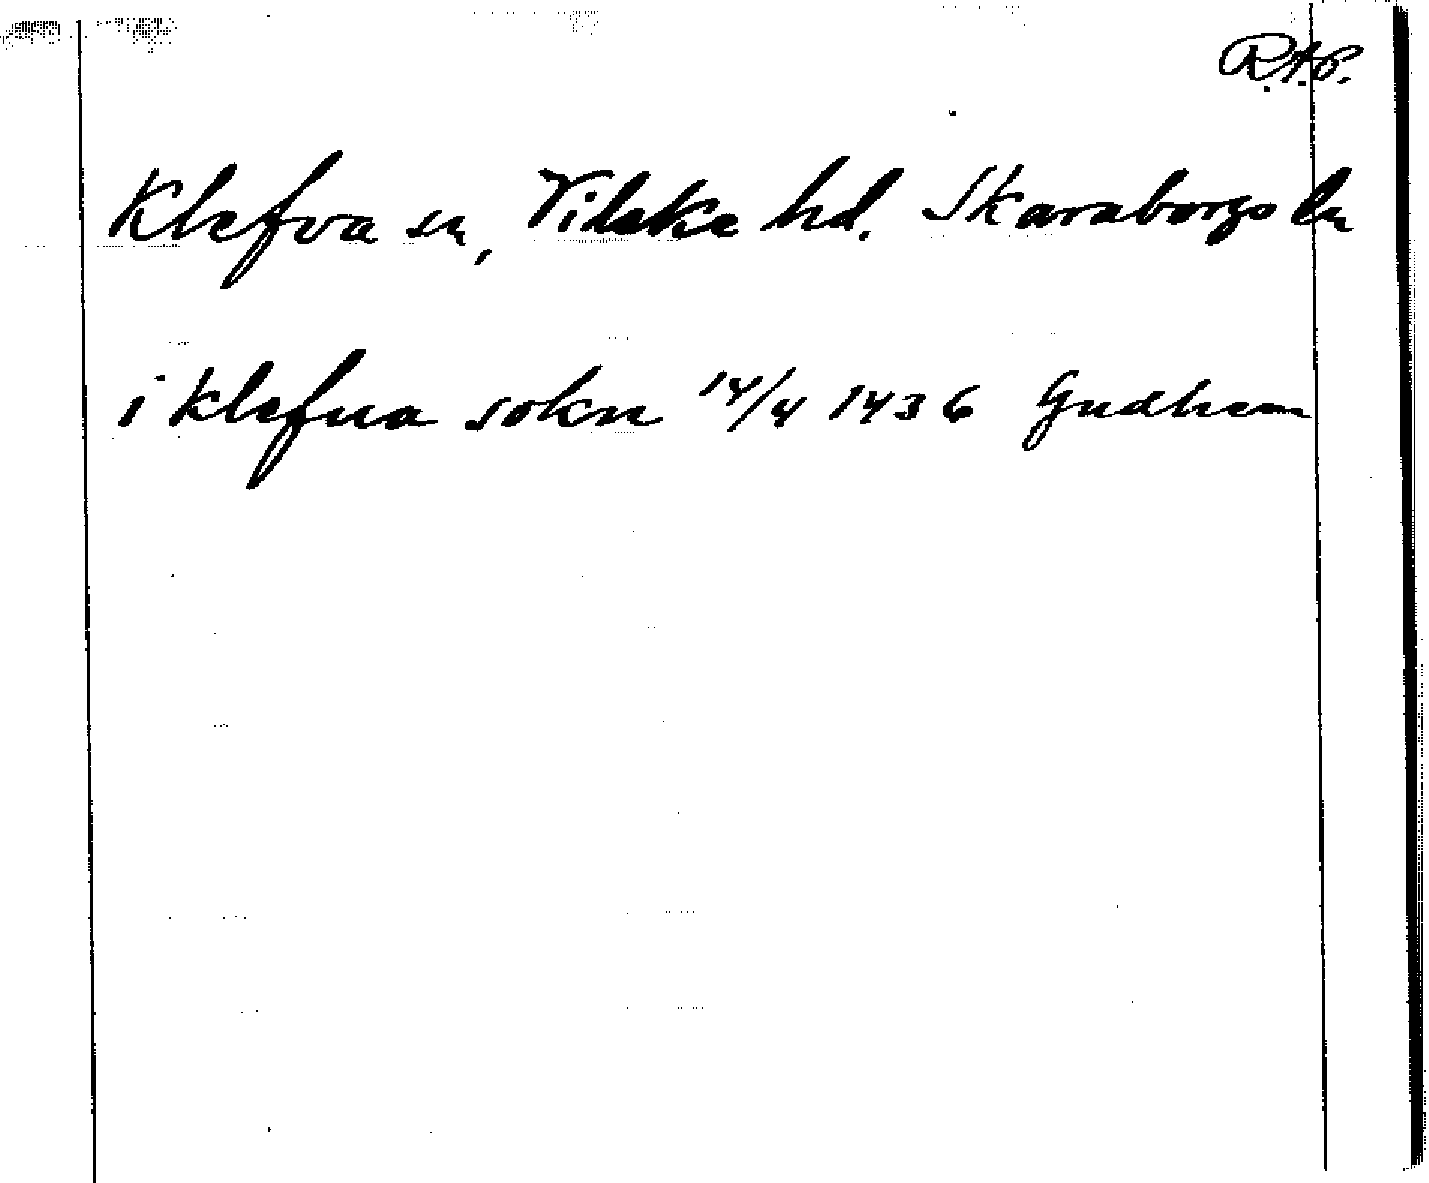 R.A.P.
Klefva sn, Vilske hd. Skaraborgs ln
i klefua sokn 14/4 1436 Gudhem